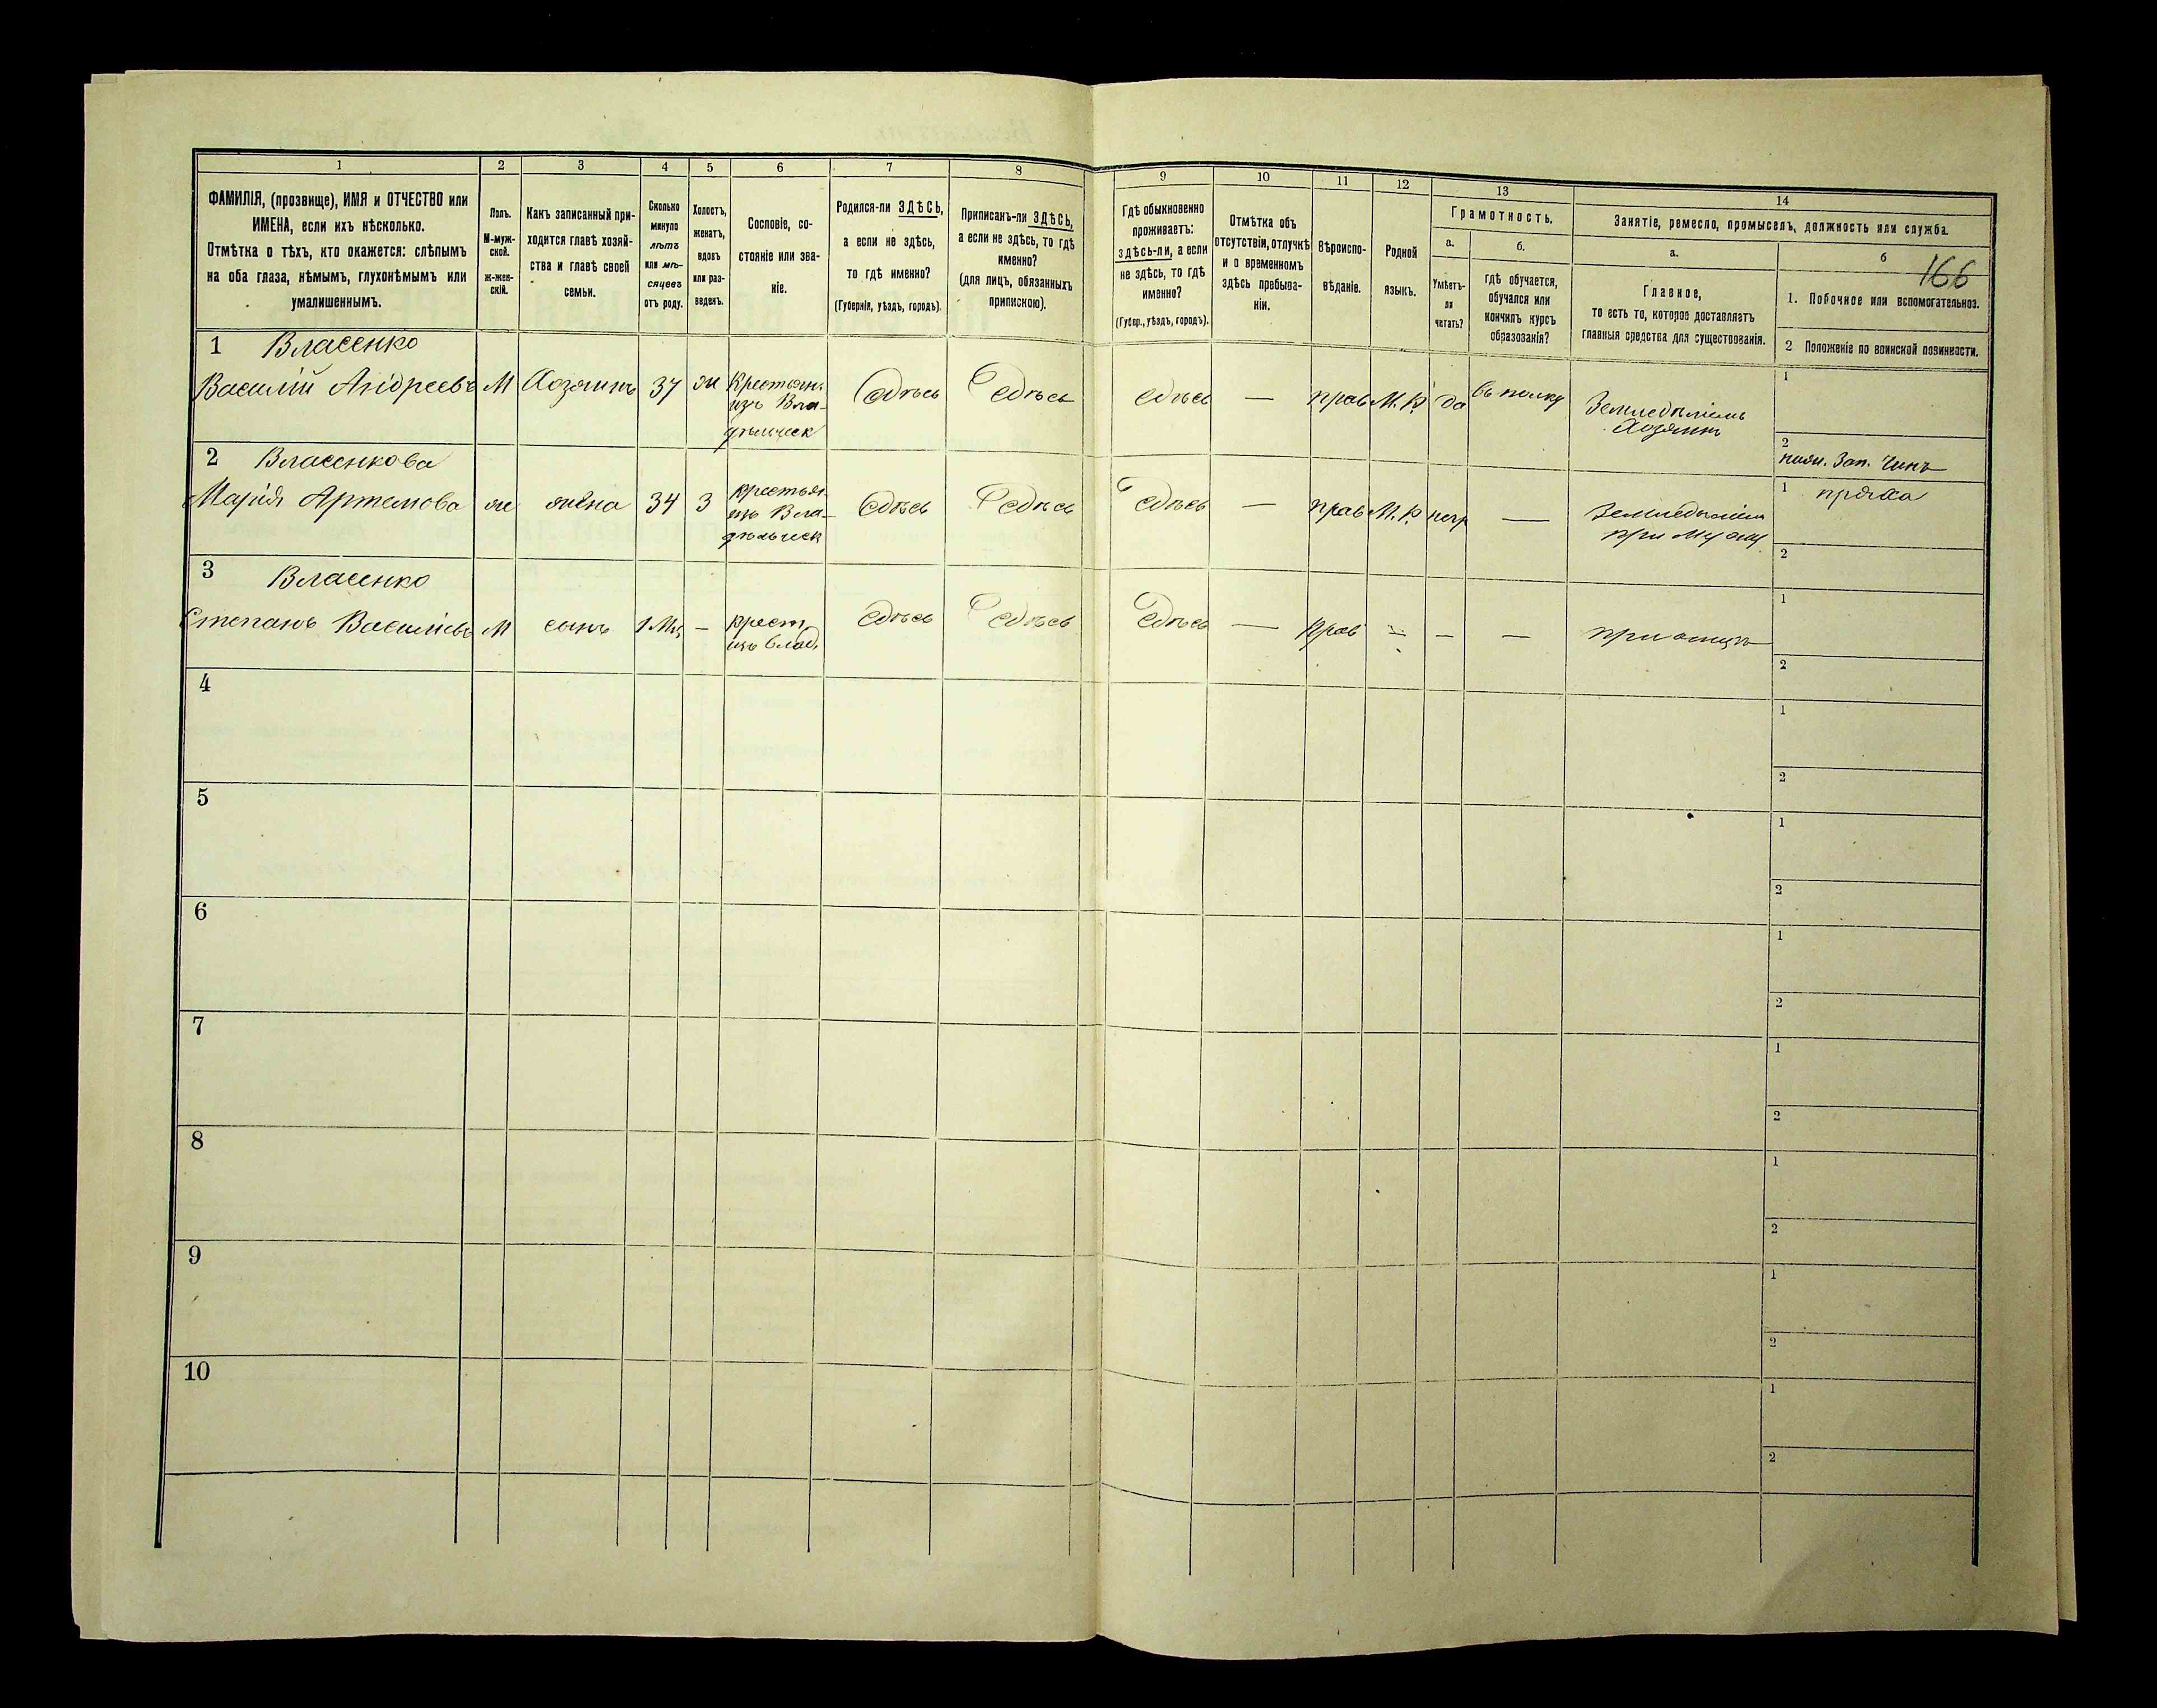 1
2
3
4
5
6
7
8
9
10
11
12
13
14
ФАМИЛІЯ, (прозвище), ИМЯ и ОТЧЕСТВО или
ИМЕНА, если ихъ нѣсколько.
Отмѣтка о тѣхъ, кто окажется: слѣпымъ
на оба глаза, нѣмымъ, глухонѣмымъ или
умалишеннымъ.
Полъ.
М-муж-
ской.
ж-жен-
скій.
Какъ записанный при-
ходится главѣ хозяй-
ства и главѣ своей
семьи.
Сколько
минуло
лѣтъ
или мѣ-
сяцевъ
отъ роду.
Холостъ,
женатъ,
вдовъ
или раз-
веденъ.
Сословіе, со-
стояніе или зва-
ніе.
Родился-ли ЗДѢСЬ,
а если не здѣсь,
то гдѣ именно?
(Губернія, уѣздъ, городъ).
Приписанъ-ли ЗДѢСЬ,
а если не здѣсь, то гдѣ
именно?
(для лицъ, обязанныхъ
припискою).
Гдѣ обыкновенно
проживаетъ:
здѣсь-ли, а если
не здѣсь, то гдѣ
именно?
(Губер., уѣздъ, городъ).
Отмѣтка объ
отсутствіи, отлучкѣ
и о временномъ
здѣсь пребыва-
ніи.
Вѣроиспо-
вѣданіе.
Родной
языкъ.
Грамотность.
а.
Умѣетъ-
ли
читать?
б.
гдѣ обучается,
обучался или
кончилъ курсъ
образованія?
Занятіе, ремесло, промыселъ, должность или служба.
а.
Главное,
то есть то, которое доставляетъ
главныя средства для существованія.
б
166
1. Побочное или вспомогательное.
2 Положеніе по воинской повинности.
1 Власенко
Василій Андреевъ
М
Хозяинъ
37
ж
Крестьян.
изъ Вла-
дѣльческ
Здѣсь
Здѣсь
Здѣсь
—
прав
М.Р.
да
въ полку
Земледѣліемъ
Хозяинъ
1
2
Зап. Чинъ
2 Власенкова
Марія Артемова
ж
жена
34
З
крестьян.
изъ Вла-
дѣльческ
Здѣсь
Здѣсь
Здѣсь
—
прав
М.Р.
—
при мужу
1 пряха
2
3 Власенко
Степанъ Васильевъ
М
сынъ
—
крест.
изъ влад.
Здѣсь
Здѣсь
Здѣсь
—
прав
—
—
—
при отцѣ
1
2
4
1
2
5
1
2
6
1
2
7
1
2
8
1
2
9
1
2
10
1
2